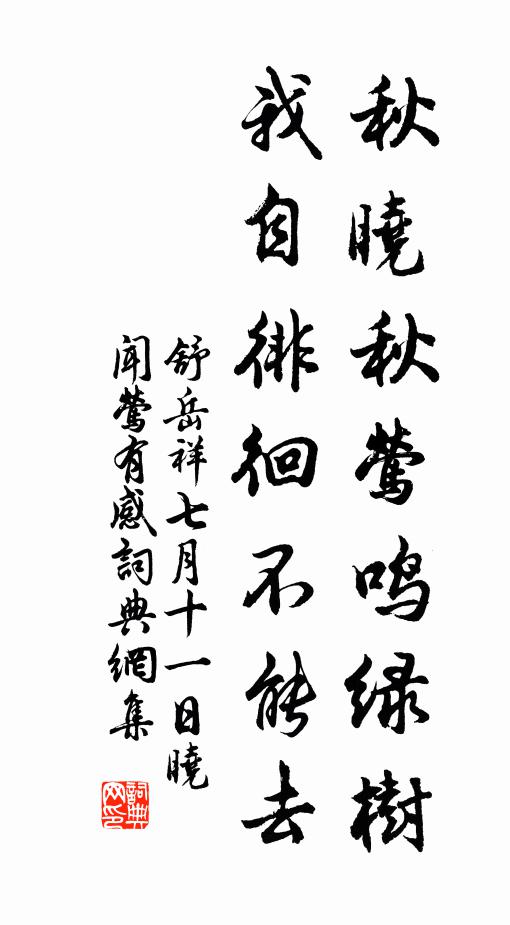 秋曉秋鶯鳴绿樹
我自徘徊不能去
舒岳祥七月十一日曉
聞鶯有感詞典網集
詞典
网印